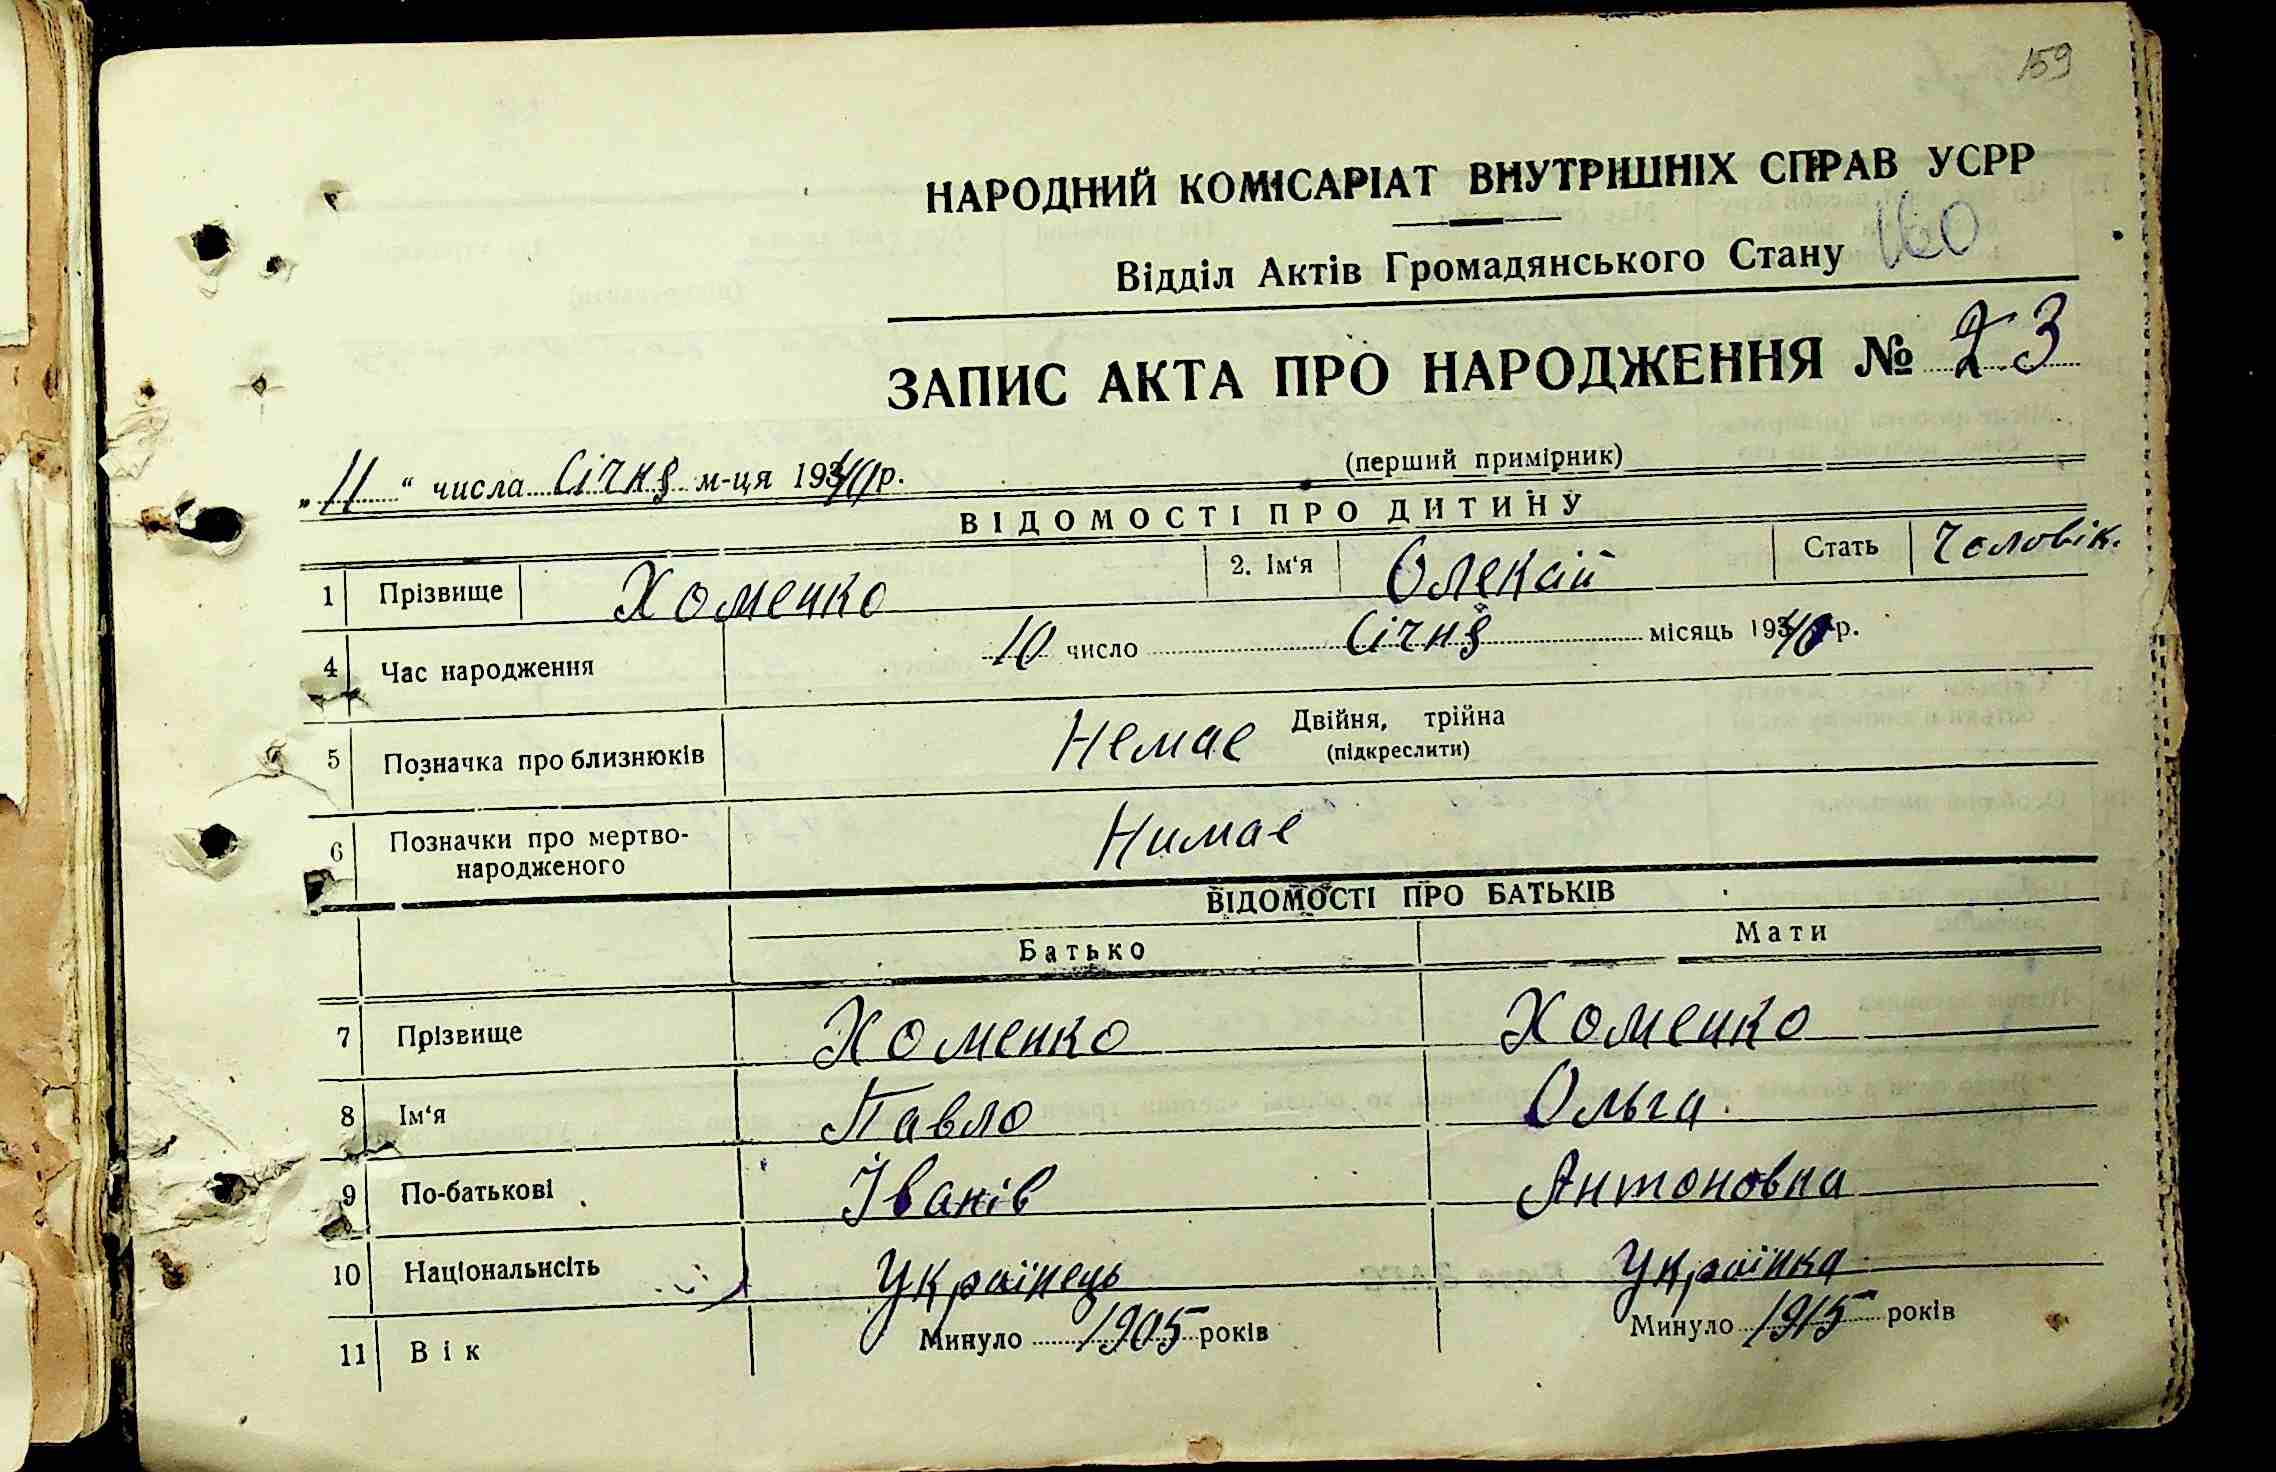 159
НАРОДНИЙ КОМІСАРІАТ ВНУТРІШНІХ СПРАВ УСРР
Відділ Актів Громадянського Стану 160
ЗАПИС АКТА ПРО НАРОДЖЕННЯ № 23
(перший примірник)
„11“ числа Січня м-ця 1940 р.
ВІДОМОСТІ ПРО ДИТИНУ
1 Прізвище Хоменко 2. Ім‘я Олексій Стать Чоловік.
4 Час народження 10 число Січня місяць 1940 р.
5 Позначка про близнюків Немає Двійня, трійна
(підкреслити)
6 Позначки про мертво-
народженого Нимає
ВІДОМОСТІ ПРО БАТЬКІВ
Батько Мати
7 Прізвище Хоменко Хоменко
8 Ім‘я Павло Ольга
9 По-батькові Іванів Антоновна
10 Національнсіть Українець Українка
11 Вік Минуло 1905 років Минуло 1915 років